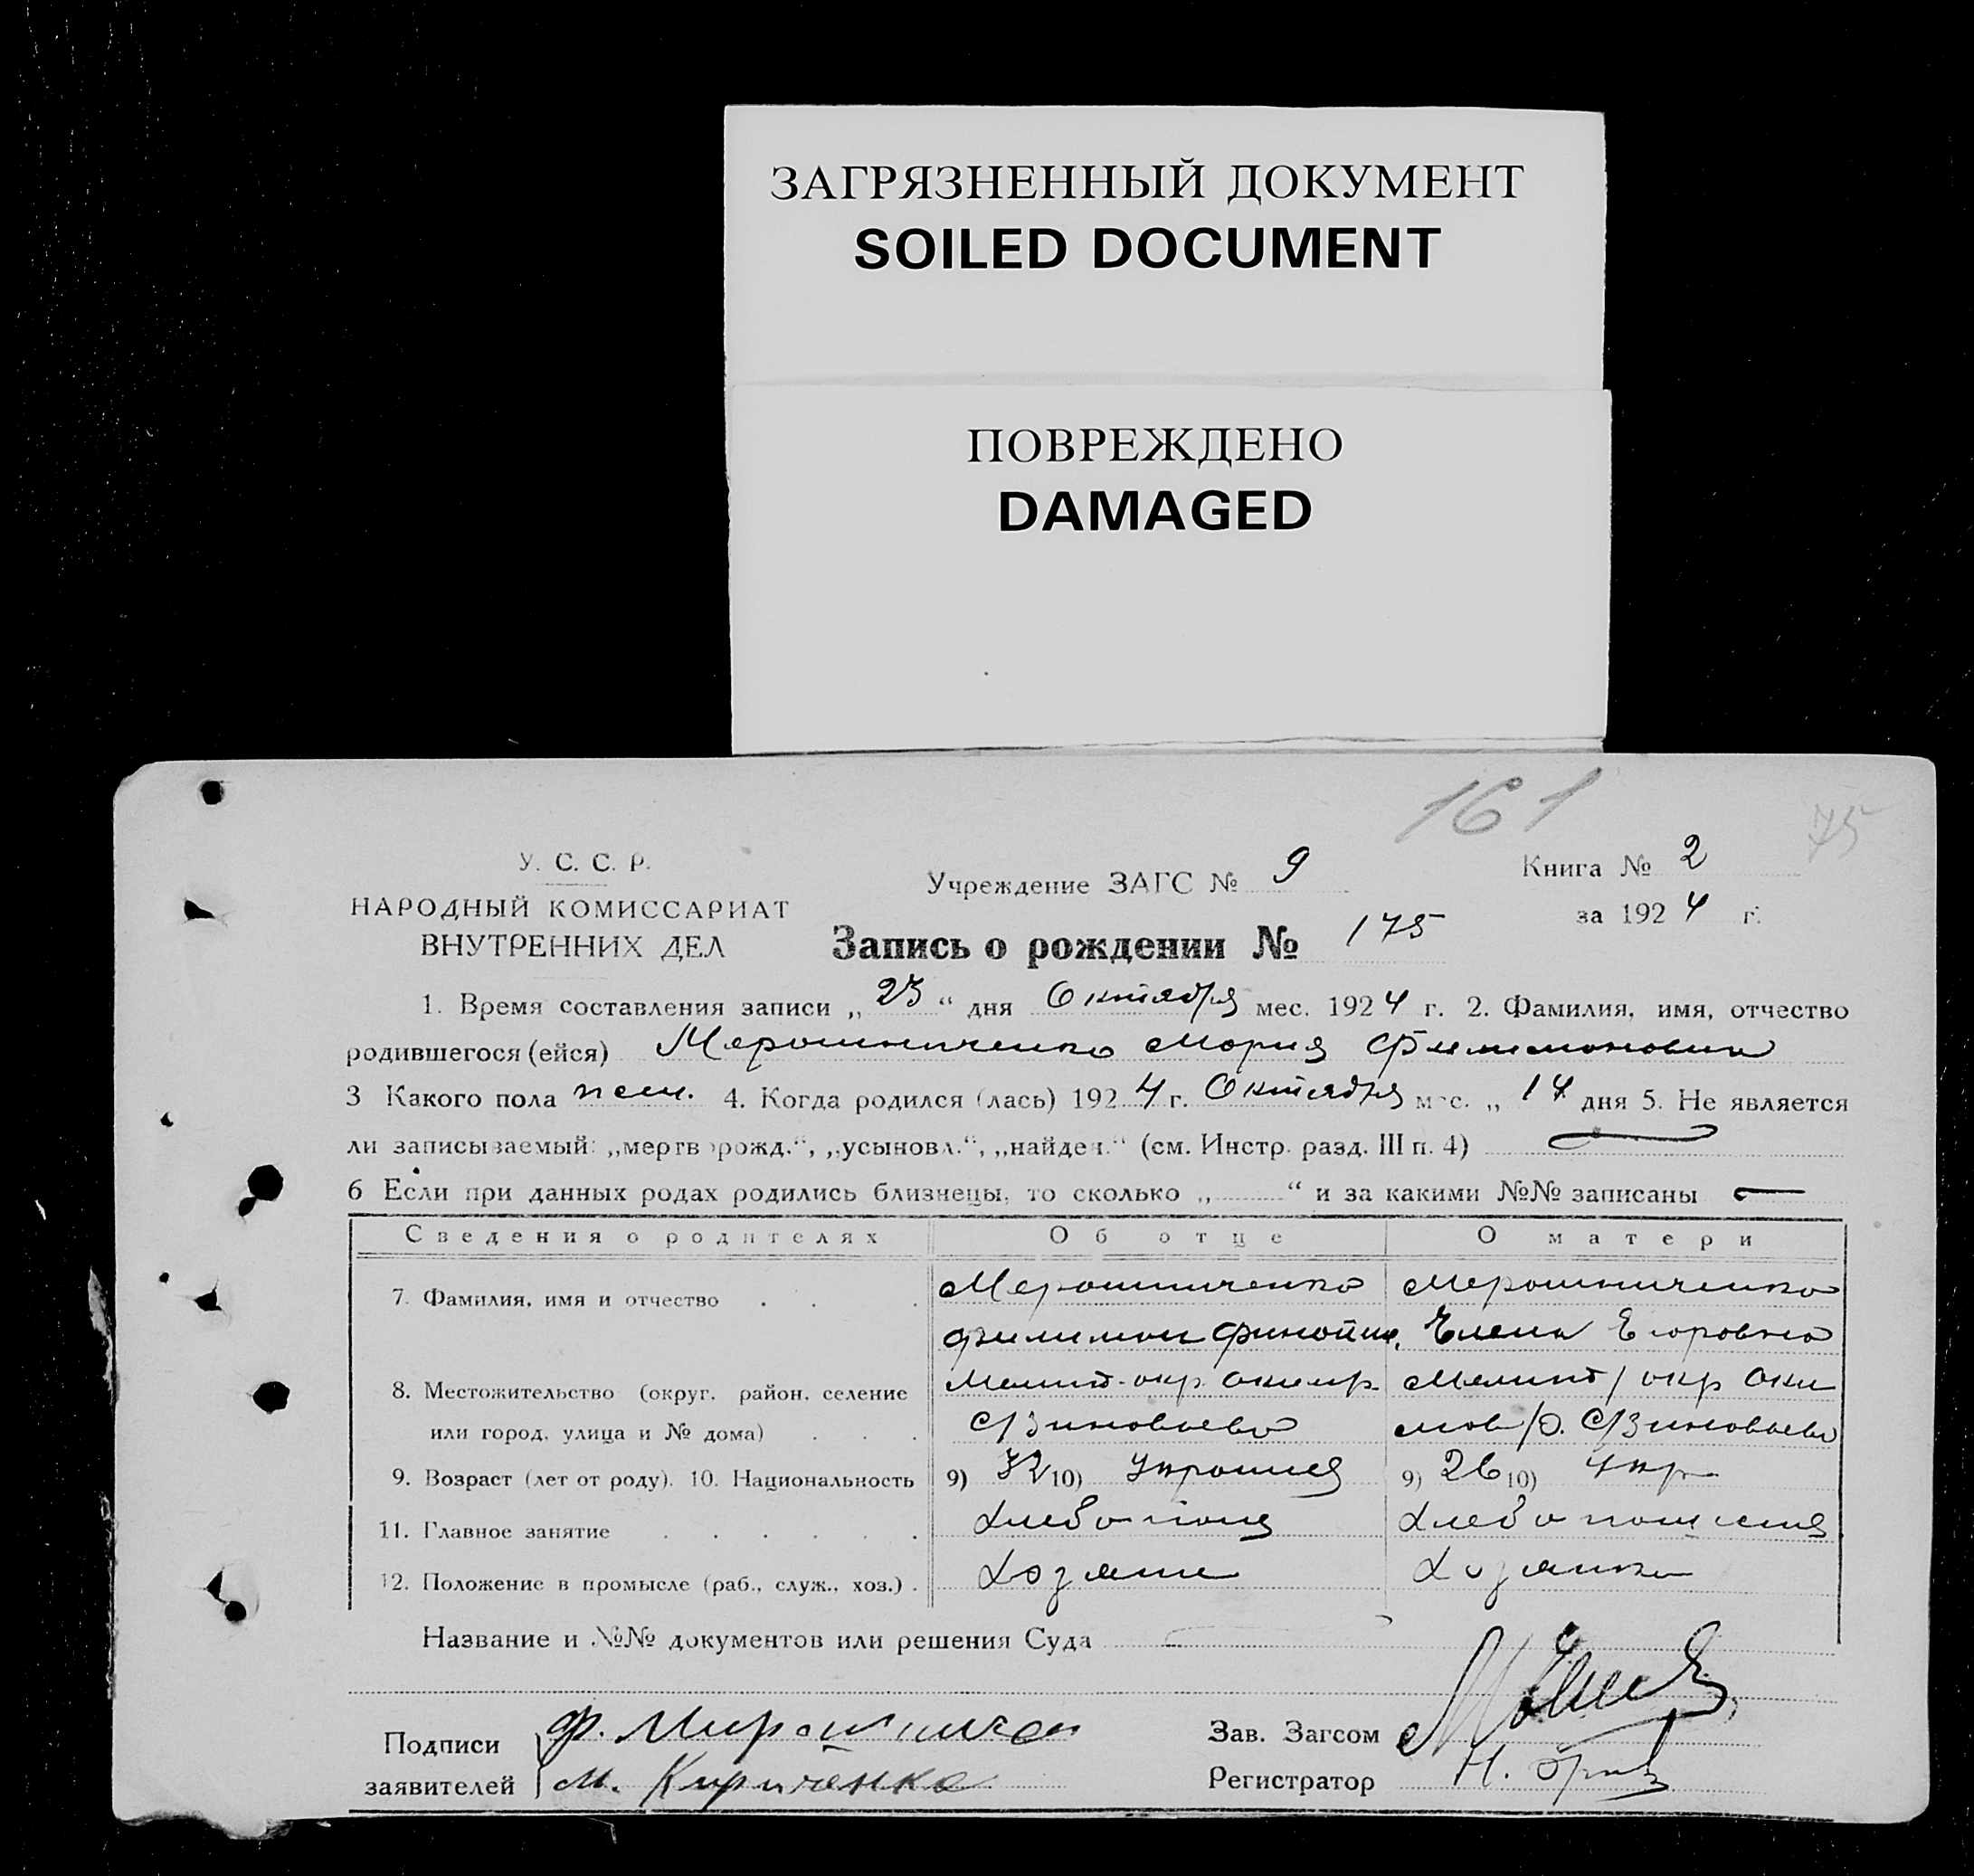 ЗАГРЯЗНЕННЫЙ ДОКУМЕНТ
SOILED DOCUMENT
ПОВРЕЖДЕНО
DAMAGED
161
75
У. С. С. Р.
НАРОДНЫЙ КОМИССАРИАТ
ВНУТРЕННИХ ДЕЛ
Учреждение ЗАГС № 9
Запись о рождении № 175
Книга № 2
за 1924 г.
1. Время составления записи „ 23 “ дня Октября мес. 1924 г. 2. Фамилия, имя, отчество
родившегося (ейся) Мерошниченко Мория Филимоновна
3 Какого пола жен. 4. Когда родился (лась) 1924 г. Октября мес. „ 14 дня 5. Не является
ли записываемый: „мертворожд.“, „усыновл.“, „найден.“ (см. Инстр. разд. III п. 4) —
6 Если при данных родах родились близнецы, то сколько „ “ и за какими №№ записаны —
Сведения о родителях Об отце О матери
7. Фамилия, имя и отчество Мерошниченко Мерошниченко
Филимон Елена Егоровна
8. Местожительство (округ, район, селение Мелит. окр. Мелит/ окр Аки
или город, улица и № дома) с/Зиновьево мов/р. с/Зиновьево
9. Возраст (лет от роду). 10. Национальность 9) 32 10) 9) 26 10) Укр
11. Главное занятие
12. Положение в промысле (раб., служ., хоз.) Хозяин Хозяйка
Название и №№ документов или решения Суда —
Подписи заявителей
Ф. Мирошничен
М. Кириченко
Зав. Загсом
Регистратор Н.